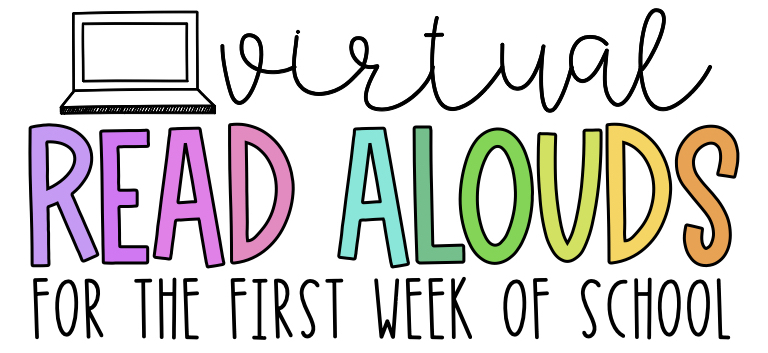 virtual
READ ALOUDS
FOR THE FIRST WEEK OF SCHOOL